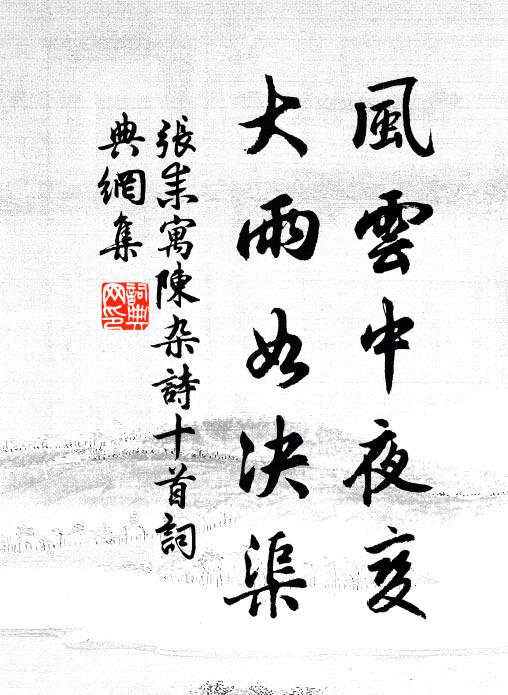 風雲中夜变
大雨如決渠
張耒寓陳杂詩十首詞
典網集
詞典网印